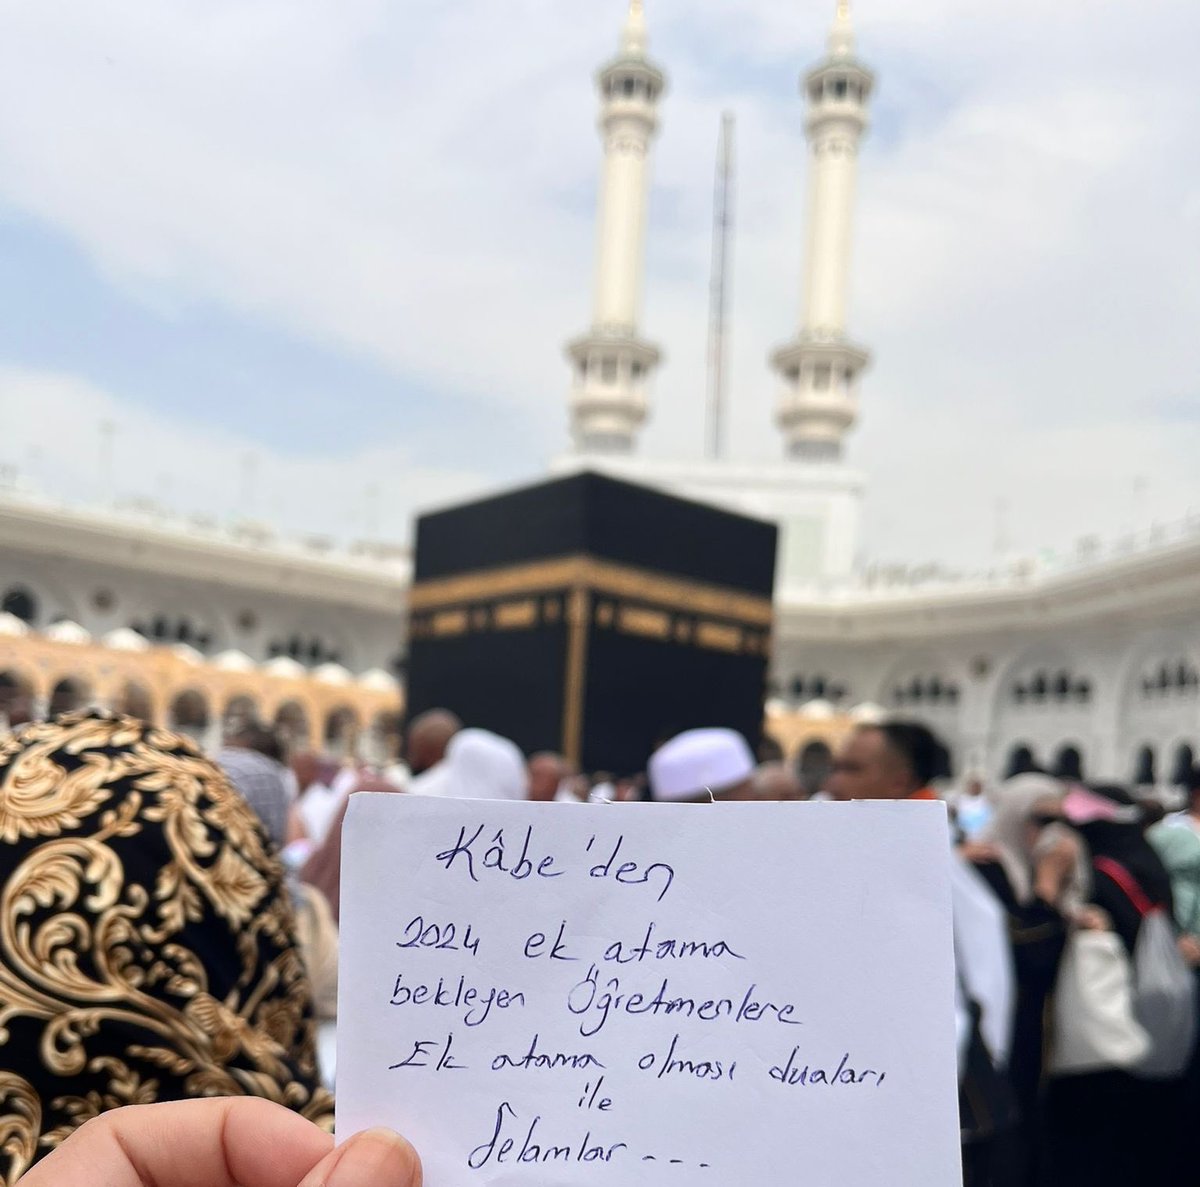 Kâbe'den
2024 ek atama
bekleyen Öğretmenlere
Ek atama olması duaları
ile
Selamlar ---